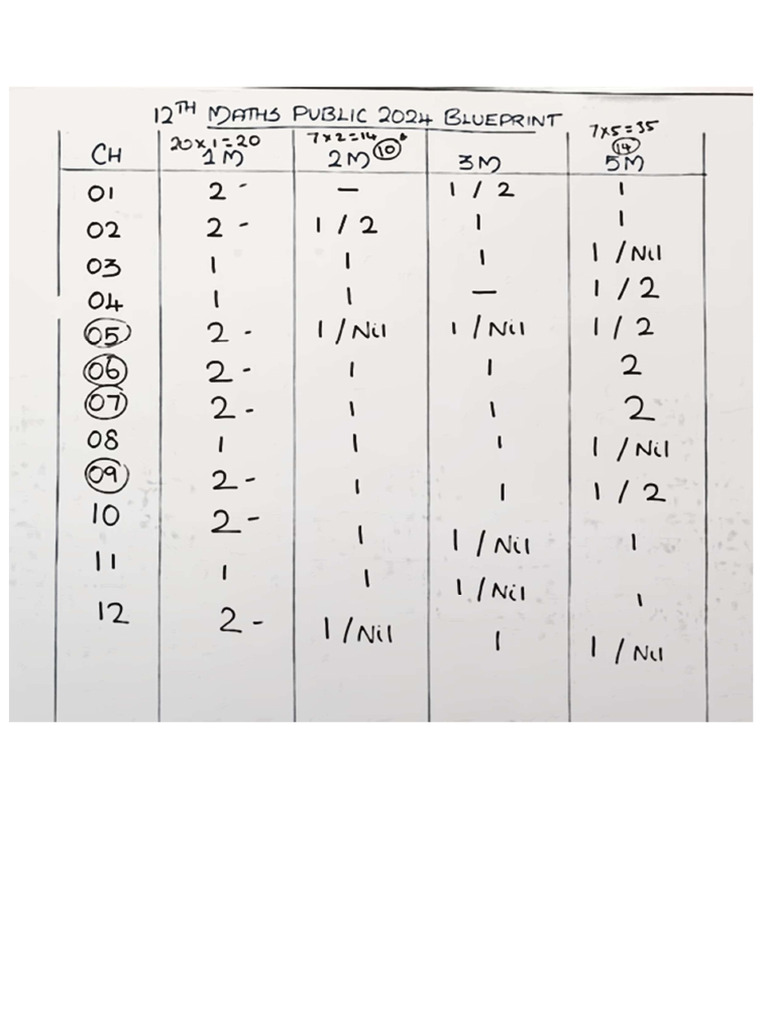 12TH MATHS PUBLIC 2024 BLUEPRINT
20×1=20 7×2=14 7×5=35
CH 1M 2M (10) 3M (14) 5M
01 2 - — 1/2 1
02 2 - 1/2 1 1
03 1 1 1 1/Nil
04 1 1 — 1/2
05 2 - 1/Nil 1/Nil 1/2
06 2 - 1 1 2
07 2 - 1 1 2
08 1 1 1 1/Nil
09 2 - 1 1 1/2
10 2 - 1 1/Nil 1
11 1 1 1/Nil 1
12 2 - 1/Nil 1 1/Nil